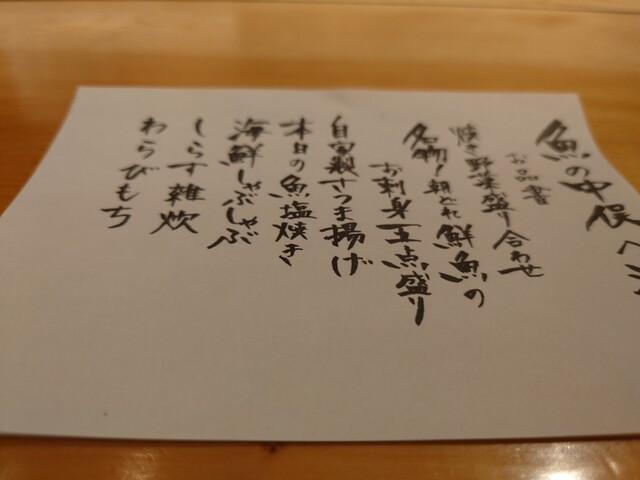 魚の中俣へ
お品書
焼き野菜盛り合わせ
名物!朝どれ鮮魚の
お刺身五点盛り
自家製さつま揚げ
本日の魚塩焼き
海鮮しゃぶしゃぶ
しらす雑炊
わらびもち